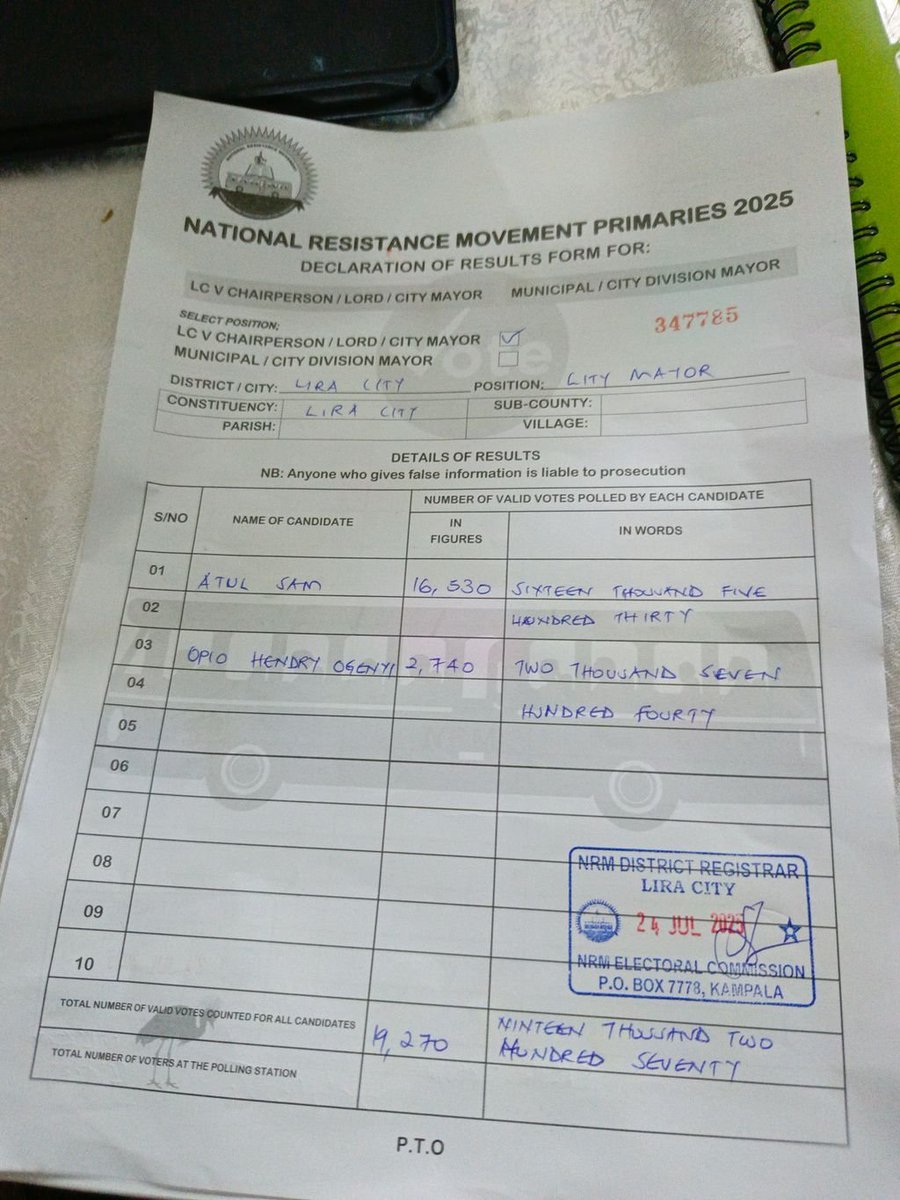 NATIONAL RESISTANCE MOVEMENT PRIMARIES 2025
DECLARATION OF RESULTS FORM FOR:
LC V CHAIRPERSON / LORD / CITY MAYOR MUNICIPAL / CITY DIVISION MAYOR
SELECT POSITION:
347785
LC V CHAIRPERSON / LORD / CITY MAYOR
MUNICIPAL / CITY DIVISION MAYOR
DISTRICT / CITY: LIRA CITY POSITION: CITY MAYOR
CONSTITUENCY: LIRA CITY SUB-COUNTY:
PARISH: VILLAGE:
DETAILS OF RESULTS
NB: Anyone who gives false information is liable to prosecution
S/NO NAME OF CANDIDATE NUMBER OF VALID VOTES POLLED BY EACH CANDIDATE
IN FIGURES IN WORDS
01 ATUL SAM 16,530 SIXTEEN THOUSAND FIVE
02 HUNDRED THIRTY
03 OPIO HENDRY OGENYI 2,740 TWO THOUSAND SEVEN
04 HUNDRED FOURTY
05
06
07
08
09
10
NRM DISTRICT REGISTRAR
LIRA CITY
24 JUL 2025
NRM ELECTORAL COMMISSION
P.O. BOX 7778, KAMPALA
TOTAL NUMBER OF VALID VOTES COUNTED FOR ALL CANDIDATES 19,270 NINTEEN THOUSAND TWO
HUNDRED SEVENTY
TOTAL NUMBER OF VOTERS AT THE POLLING STATION
P.T.O